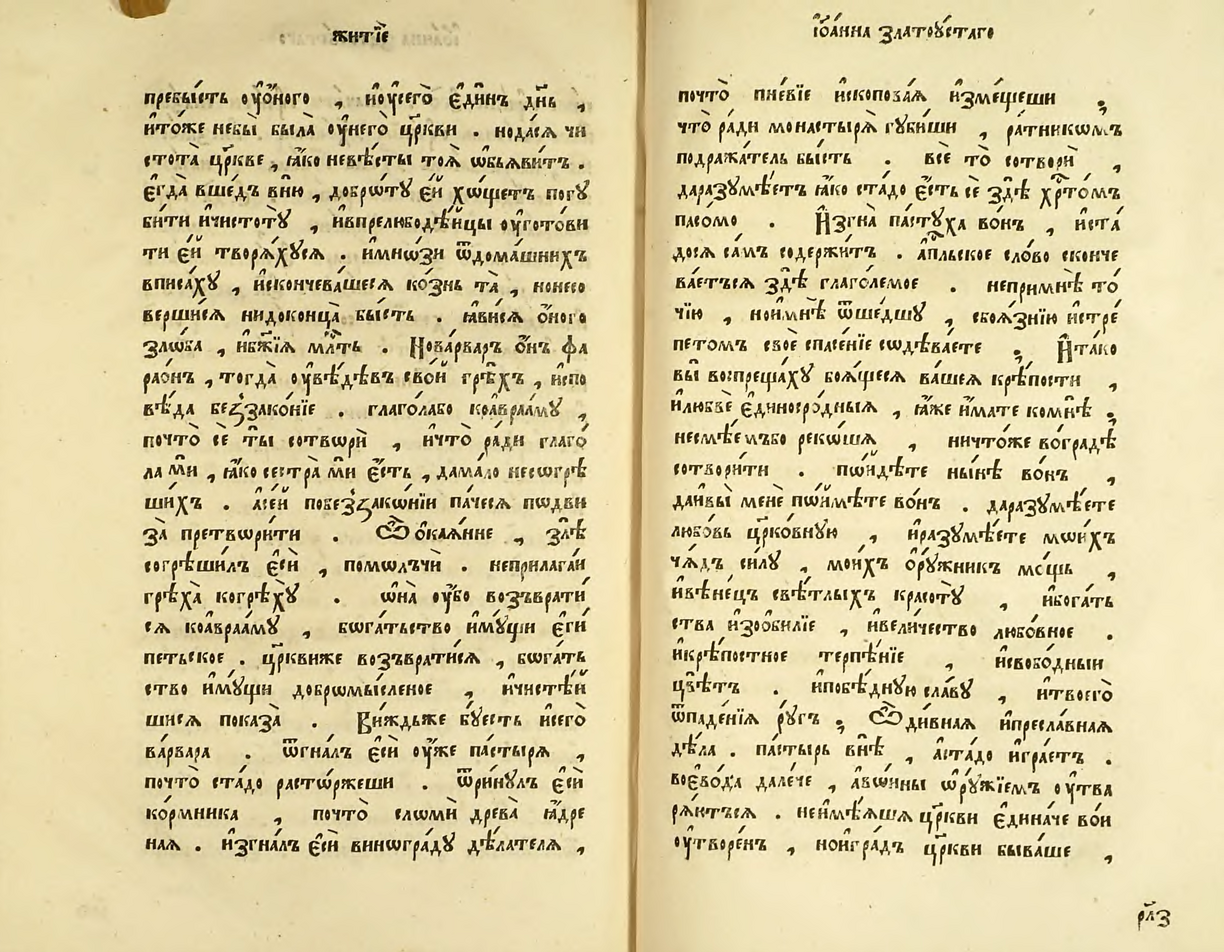 житїе
пребысть оу҆о́ного , и҆оу҆сего̀ є҆ди́нъ дн҃ь ,
и҆то́же небы̀ была̀ оу҆него̀ цр҃кви . нода́сѧ чи
стота̀ цр҃кве , ꙗ҆́ко неве́сты тоѧ̀ ѡ҆бьѧви́тъ .
є҆гда̀ вше́дъ вню̀ , добрѡтꙋ̀ є҆й хо́щетъ погꙋ
би́ти и҆чистотꙋ̀ , и҆впрелюбодѣ́йцы оу҆гото́ви
ти є҆й творѧ́хꙋсѧ . и҆мнѡ́зи ѿдома́шнихъ
вписа́хꙋ , и҆сконче́вашесѧ ко́знь та̀ , нонесо
верши́сѧ нидоконца̀ бы́сть . ꙗ҆ви́сѧ ѻ҆́ного
зло́ба , и҆бж҃їѧ мл҃ть . Нова́рваръ ѻ҆́нъ фа
рао́нъ , тогда̀ оу҆вѣ́дѣвъ сво́й грѣ́хъ , и҆спо
вѣ́да беззако́нїе . глаго́лабо коа҆враа́мꙋ ,
почто̀ сѐ ты̀ сотвори̑ , и҆что̀ ра́ди глаго́
ла мѝ , ꙗ҆́ко сестра̀ мѝ є҆́сть , дама́ло несогрѣ
ши́хъ . а҆се́й побеззако́нїи па́чесѧ пѡдви
за̀ претвори́ти . Ѽ ѻ҆каѧ́нне , злѣ̀
согрѣши́лъ є҆сѝ , помолчи̑ . неприлага́й
грѣха̀ когрѣхꙋ̀ . ѡ҆на̀ оу҆́бо возъврати́
сѧ коа҆враа́мꙋ , бога́тьство и҆мꙋ́щи є҆ги́
петьское . цр҃квиже возъврати́сѧ , бога́ть
ство и҆мꙋ́щи добромы́сленое , и҆чистѣ́й
шисѧ показа̀ . Ви́ждьже бꙋ́есть и҆сего̀
ва́рвара . ѿгна́лъ є҆сѝ оу҆́же па́стырѧ ,
почто̀ ста́до расто́ржеши . ѿри́нꙋлъ є҆сѝ
ко́рмника , почто̀ сло́ми дре́ва ꙗ҆́дре
наѧ . и҆згна́лъ є҆сѝ виногра́дꙋ дѣ́лателѧ ,
і҆ѡа́нна златоꙋ́стаго
почто̀ пне́вїе и҆скопо́ваѧ и҆зме́щеши ;
что̀ ра́ди монастырѧ̀ гꙋ́биши , ра́тникомъ
подража́тель бы́сть . всѐ то̀ сотвори̑ ,
даразꙋмѣ́етъ ꙗ҆́ко ста́до є҆́сть сѐ здѣ̀ хр҃то́мъ
пасо́мо . И҆згна̀ пастꙋха̀ во́нъ , и҆ста́
досѧ са́мъ содержи́тъ . а҆пⷭ҇льское сло́во сконче
ва́етъсѧ здѣ̀ глаго́лемое . непримнѣ̀ то́
чїю , нои҆мнѣ̀ ѿше́дшꙋ , сбоѧ́знїю и҆стре́
петомъ своѐ спасе́нїе содѣва́ете ; И҆та́ко
вы̀ воспреща́хꙋ боѧ́щесѧ ва́шеѧ крѣ́пости ,
и҆любвѐ є҆диноро́дныѧ , ꙗ҆́же и҆́мате комнѣ̀ ;
несмѣ́емъбо реко́шѧ , ничто́же во́градѣ
сотвори́ти . пѡи҆дѣ́те ны́нѣ во́нъ ,
даи҆вы̀ менѐ пѡи҆мѣ́те во́нъ . даразꙋмѣ́ете
любо́вь цр҃ко́внꙋю , и҆разꙋмѣ́ете мои́хъ
чѧ́дъ си́лꙋ , мои́хъ ѻ҆рꙋ́жникъ мо́щь ,
и҆вѣне́цъ свѣ́тлыхъ красотꙋ̀ , и҆бога́ть
ства и҆зооби́лїе , и҆вели́чество любо́вное .
и҆крѣ́постное терпѣ́нїе , и҆свобо́дныи
цвѣ́тъ . и҆побѣ́днꙋю сла́вꙋ , и҆твоего̀
ѿпаде́нїѧ рꙋ́гъ ; Ѽ ди́внаѧ и҆пресла́внаѧ
дѣ́ла . па́стырь внѣ̀ , а҆ста́до и҆гра́етъ .
воево́да дале́че , а҆во́ины ѻ҆рꙋ́жїемъ оу҆тва
рѧ́ютъсѧ . неи҆мѣ́ѧшѧ цр҃кви є҆ди́наче во́и
оу҆творе́нъ , нои҆гра́дъ цр҃кви быва́ше ,
рл҃з